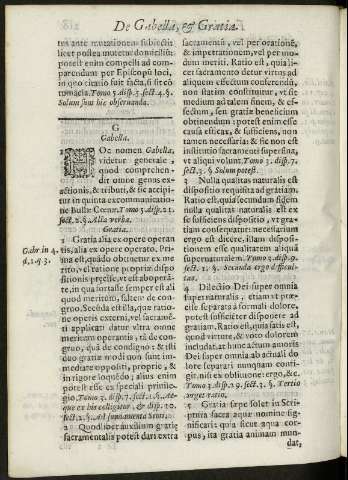 De Gabella, & Gratia.
tus ante mutationem subiectis
licet postea mutetur domicilium
potest enim compelli ad com-
parendum per Episcopũ loci,
in quo citatio fuit facta, si sit co-
tumacia. Tomo 5. disp. 3. sect. 4. §.
Solum sunt hic observanda.
G
Gabella.
HOc nomen Gabella,
videtur generale,
quod comprehen-
dit omne genus ex-
actionis, & tributi, & sic accipi-
tur in quinta excommunicatione
Bullæ Cœnæ. Tomo 5. disp. 21.
sect. 2. §. Alia verba.
Gratia.
1 Gratia alia ex opere operan
Gabr in 4.
d. 1. q. 3.
tis, alia ex opere operato. Pri-
ma est, quæ obtinetur ex me
rito, vel ratione propriæ dispo
sitionis præcise, vt est ab opera-
te, in qua fortasse semper est ali
quod meritum, saltem de con-
gruo. Secũda est illa, quæ ratio-
ne operis externi, vel sacramē-
ti applicati datur vltra omne
meritum operantis, tã de con-
gruo, quã de condigno: & isti
duo gratiæ modi non sunt im-
mediate oppositi, proprie, &
in rigore loquẽdo; alius enim
potest esse ex speciali priuile-
gio. Tomo 3. disp. 7. sect. 1. §. At-
que ex his colligitur, & disp. 10.
sect. 2. §. Ad fundamenta Scoti.
2 Quod libet auxilium gratiæ
sacramentalis potest dari extra
sacramentũ, vel per orationē,
& impetrationem, vel per mo-
dum meriti. Ratio est, quia li-
cet sacramento detur virtus ad
aliquem effectum conferendũ,
non statim constituitur, vt sit
medium ad talem finem, & ef-
fectum, seu gratiæ beneficium
obtinendum: potest enim esse
causa efficax, & sufficiens, non
tamen necessaria: & sic non est
institutio sacramenti superflua,
vt aliqui volunt. Tomo 3. disp. 7.
sect. 3. §. Solum potest.
3 Nulla qualitas naturalis est
dispositio requisita ad gratiam.
4 Dilectio Dei super omnia
supernaturalis, etiam vt præ-
cise separata à formali dolore,
potest sufficienter disponere ad
gratiam. Ratio est, quia satis est,
quod virtute, & voto dolorem
includat, at hunc actum amoris
Dei super omnia ab actuali do
lore separari nunquam contin-
git, nisi ex obliuione: ergo, &c.
Tomo 3. disp. 29. sect. 3. §. Tertio
arguet ratio.
5 Gratia sæpe solet in Scri-
ptura sacra aqua nomine sig-
nificari: quia sicut aqua cor-
pus, ita gratia animam mun-
dat,